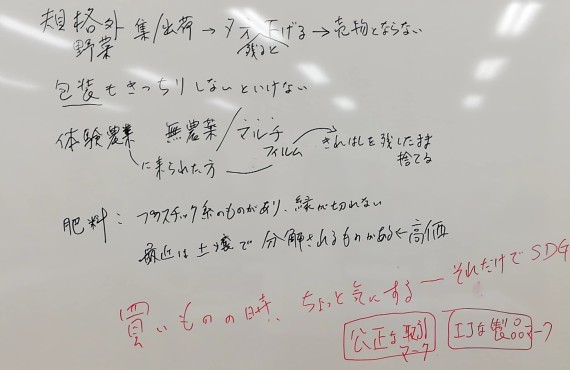 規格外 集/出荷 → 下げる → 売物とならない
野菜 残ると
包装もきっちりしないといけない
体験農業 無農薬/マルチ きれはしを残したまま
に来られた方 フィルム 捨てる
肥料: プラスチック系のものがあり、縁が切れない
最近は土壌で分解されるものがある←高価
買いものの時、ちょっと気にする ― それだけでSDG
公正な取引 エコな製品マーク
マーク